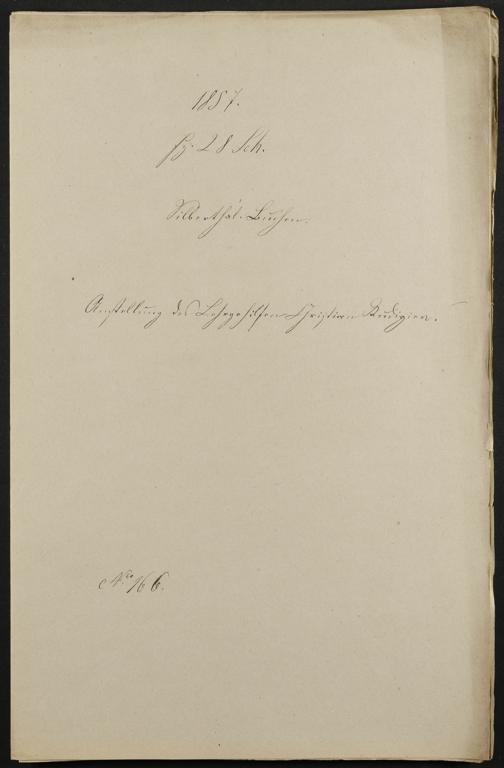 1857.
Fz. 28 Sch.
Silberthal-Buchen.
Anstellung des Lehrgehilfen Christian Rudigier.
No. 166.